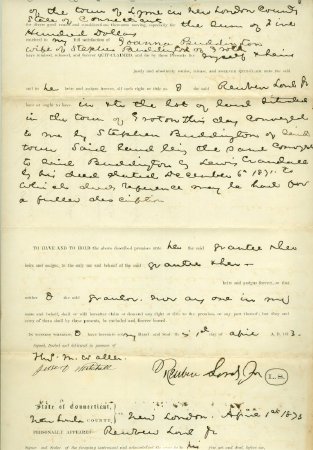 of the town of Lyme in New London County
State of Connecticut
for the sum of Five
Hundred Dollars
received to my full satisfaction of Joanna Buddington
wife of Stephen Buddington of Groton
have remised, released, and forever QUIT-CLAIMED, and do by these Presents for myself & heirs
justly and absolutely remise, release, and forever QUIT-CLAIM unto the said
and to her heirs and assigns forever, all such right or title as I the said Reuben Lord Jr
have or ought to have in & to the lot of land situated
in the town of Groton this day conveyed
to me by Stephen Buddington of said
town Said land being the same conveyed
to said Buddington by Lewis Crandall
by his deed dated December 6th 1871 to
which deed reference may be had for
a fuller description
TO HAVE AND TO HOLD the above described premises unto her the said grantee & her
heirs and assigns, to the only use and behoof of the said
grantee & her
heirs and assigns forever, so that
neither I the said grantor nor any one in my
name and behalf, shall or will hereafter claim or demand any right or title to the premises, or any part thereof; but they and
every of them shall by these presents, be excluded and forever barred.
In witness whereof, I have hereunto set my Hand and Seal this 1st day of April A. D. 1873.
Signed, Sealed and Delivered
in presence of
Thos. M. Waller
Reuben Lord Jr L. S.
State of Connecticut,
New London COUNTY, New London April 1st 1873
PERSONALLY APPEARED Reuben Lord Jr
Signer and Sealer of the foregoing instrument and acknowledged the same to be his free act and deed, before me,